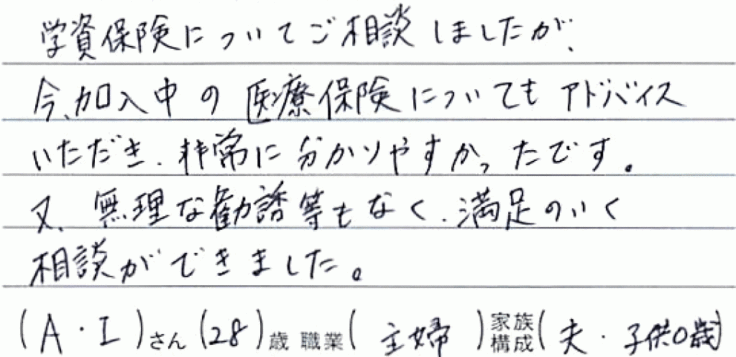 学資保険についてご相談しましたが、
今、加入中の医療保険についてもアドバイス
いただき、非常に分かりやすかったです。
又、無理な勧誘等もなく、満足のいく
相談ができました。
(A・I)さん(28)歳 職業(主婦)家族構成(夫・子供0歳)